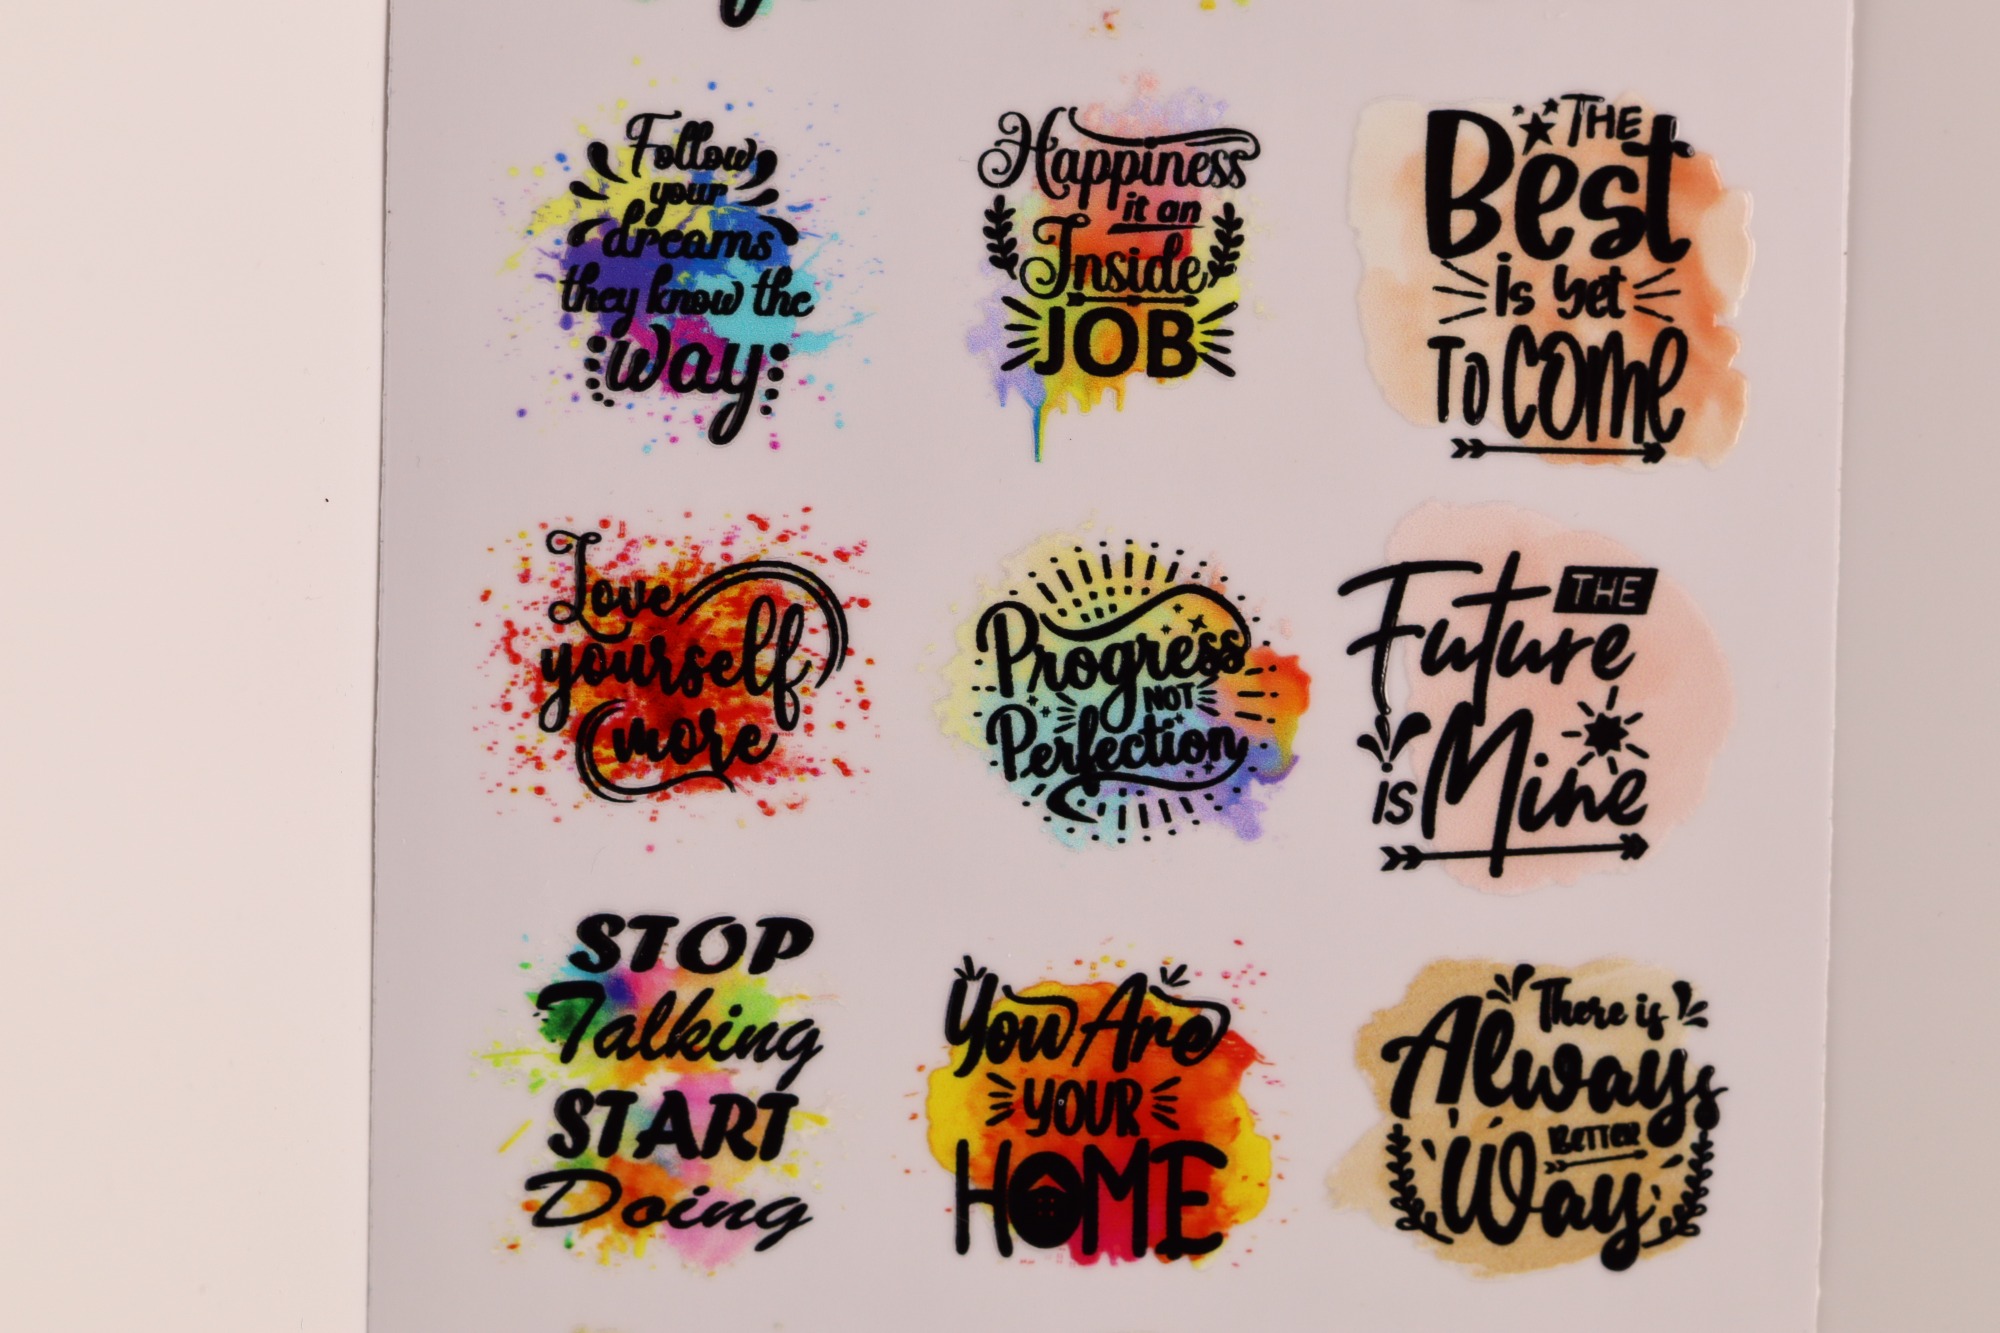 Follow
your
dreams
they know the
way
Happiness
it an
Inside
JOB
THE
Best
is yet
TO COME
Love
yourself
more
Progress
NOT
Perfection
THE
Future
is Mine
STOP
Talking
START
Doing
You Are
YOUR
HOME
There is
Always
BETTER
Way